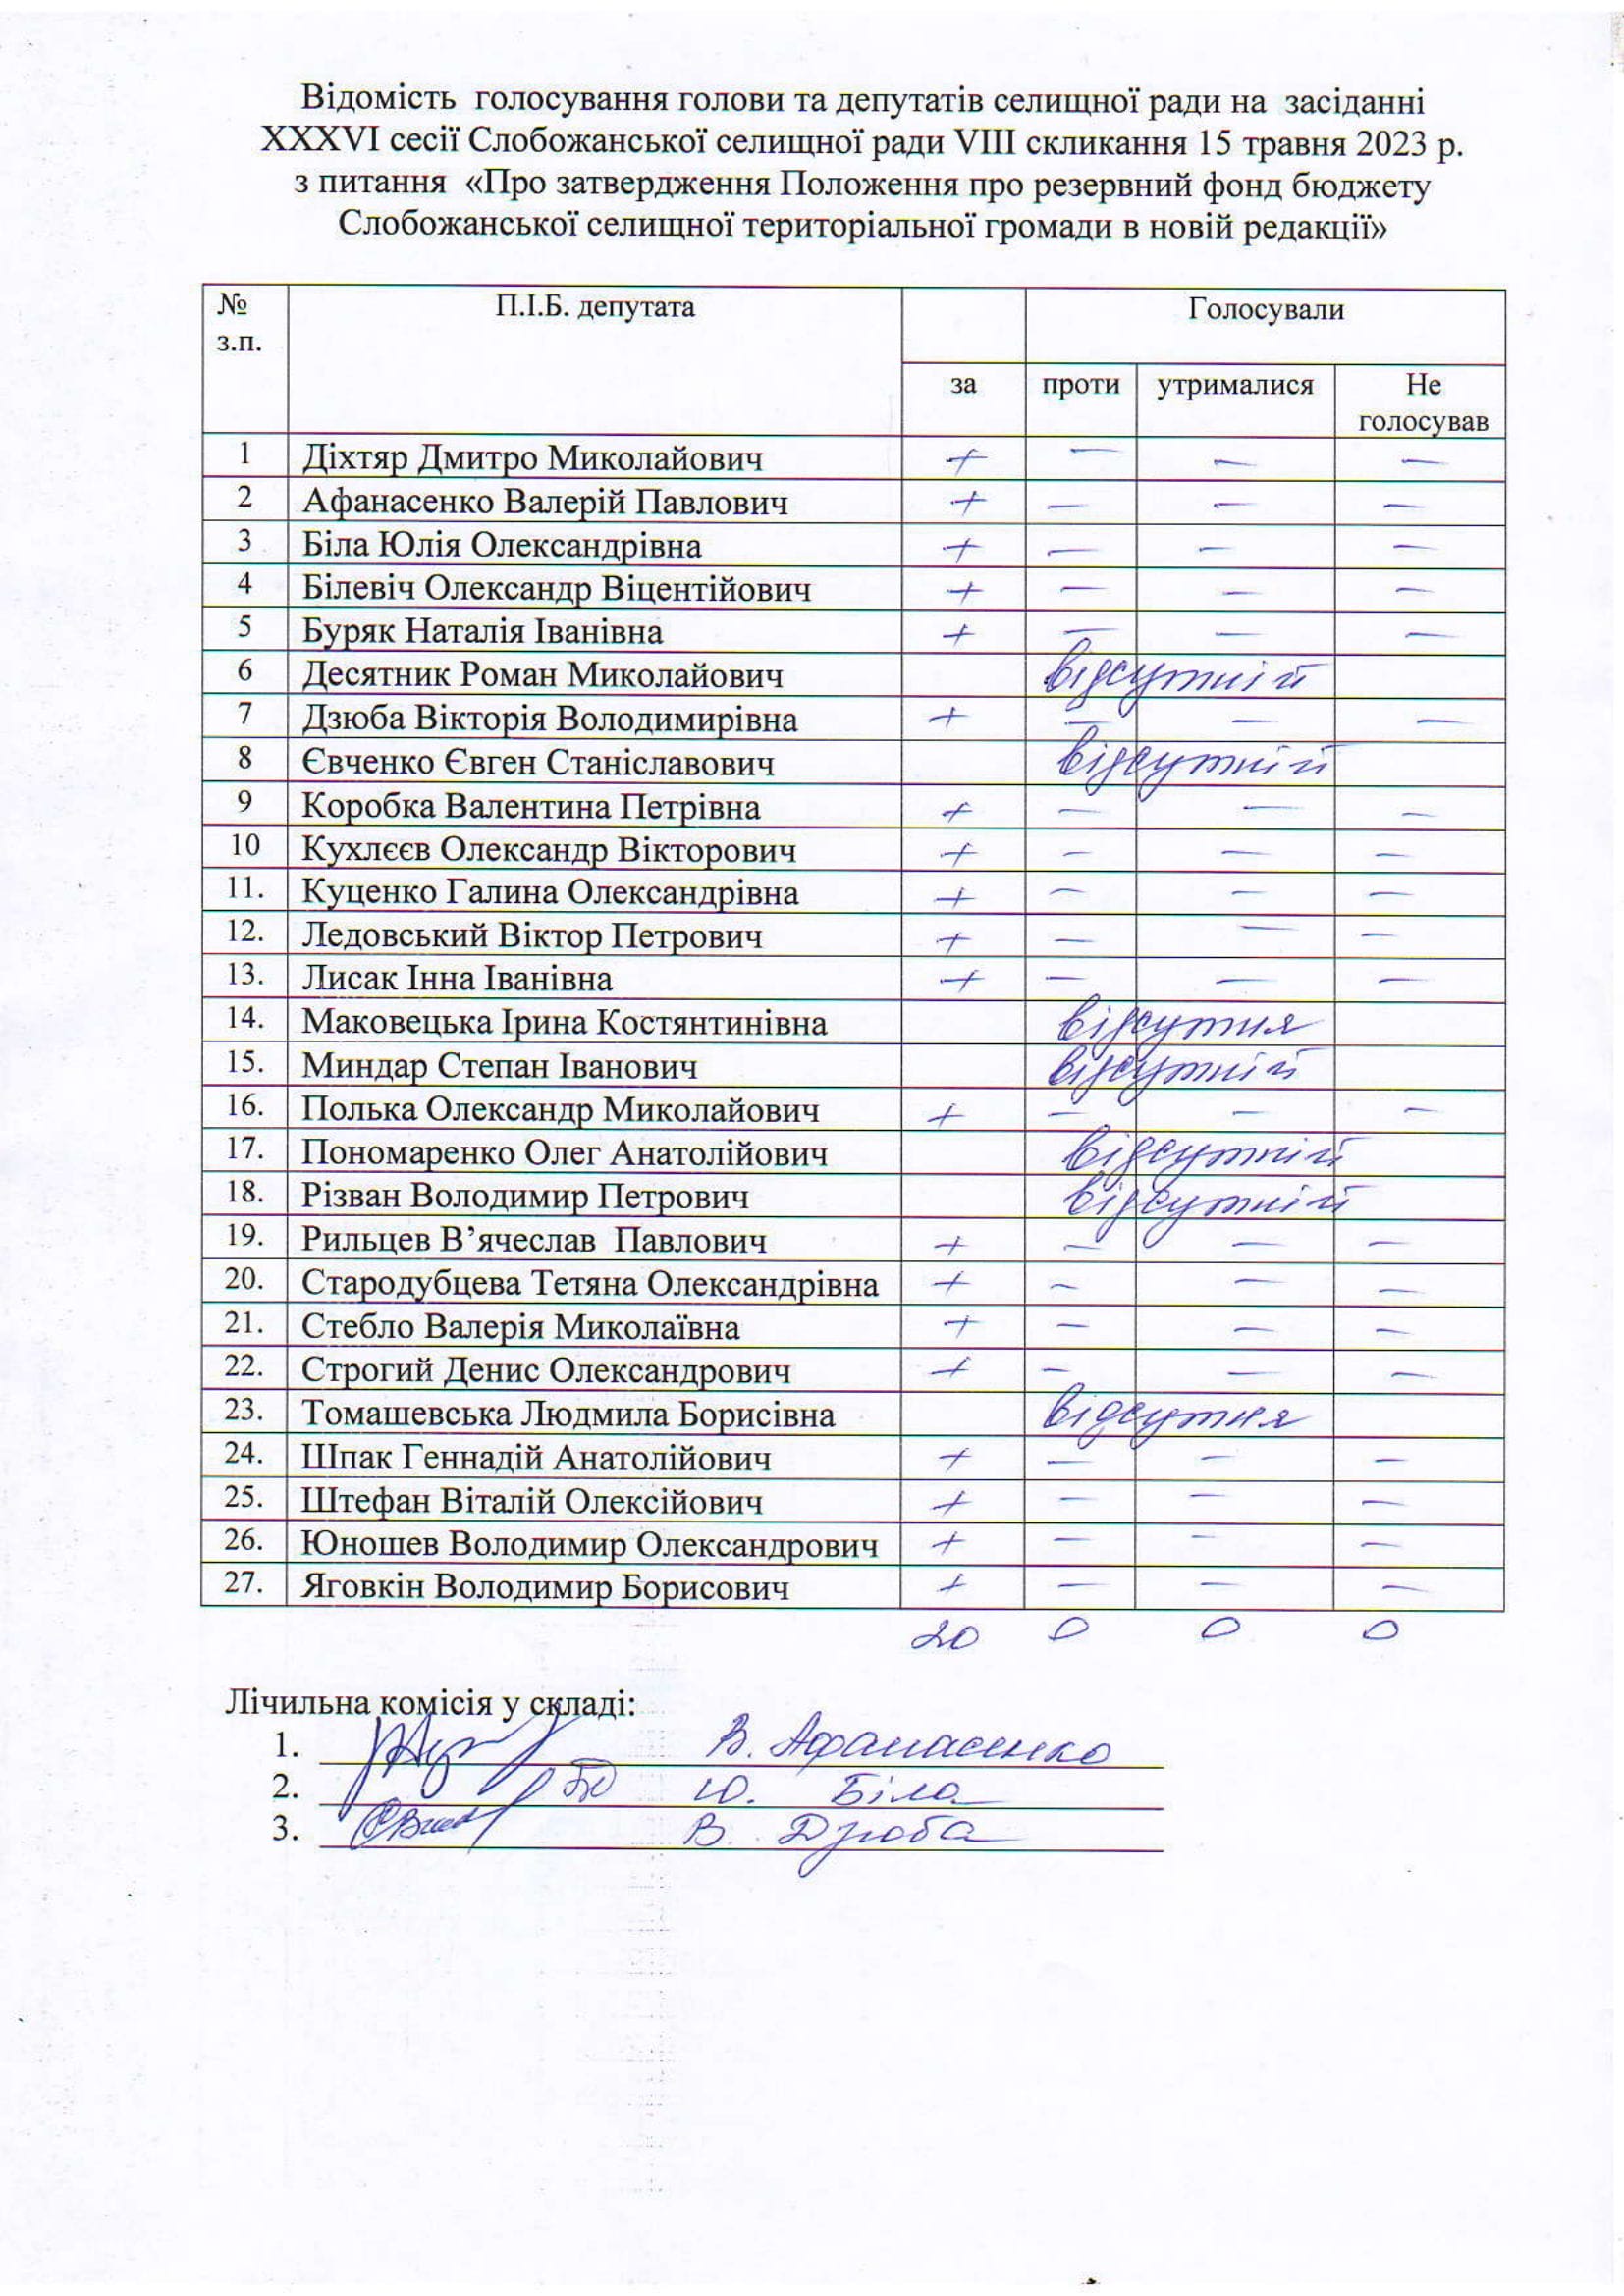 Відомість голосування голови та депутатів селищної ради на засіданні
XXXVI сесії Слобожанської селищної ради VIII скликання 15 травня 2023 р.
з питання «Про затвердження Положення про резервний фонд бюджету
Слобожанської селищної територіальної громади в новій редакції»
№ з.п. П.І.Б. депутата Голосували
за проти утрималися Не голосував
1 Діхтяр Дмитро Миколайович + — — —
2 Афанасенко Валерій Павлович + — — —
3 Біла Юлія Олександрівна + — — —
4 Білевіч Олександр Віцентійович + — — —
5 Буряк Наталія Іванівна + — — —
6 Десятник Роман Миколайович відсутній
7 Дзюба Вікторія Володимирівна + — — —
8 Євченко Євген Станіславович відсутній
9 Коробка Валентина Петрівна + — — —
10 Кухлєєв Олександр Вікторович + — — —
11. Куценко Галина Олександрівна + — — —
12. Ледовський Віктор Петрович + — — —
13. Лисак Інна Іванівна + — — —
14. Маковецька Ірина Костянтинівна відсутня
15. Миндар Степан Іванович відсутній
16. Полька Олександр Миколайович + — — —
17. Пономаренко Олег Анатолійович відсутній
18. Різван Володимир Петрович відсутній
19. Рильцев В’ячеслав Павлович + — — —
20. Стародубцева Тетяна Олександрівна + — — —
21. Стебло Валерія Миколаївна + — — —
22. Строгий Денис Олександрович + — — —
23. Томашевська Людмила Борисівна відсутня
24. Шпак Геннадій Анатолійович + — — —
25. Штефан Віталій Олексійович + — — —
26. Юношев Володимир Олександрович + — — —
27. Яговкін Володимир Борисович + — — —
20 0 0 0
Лічильна комісія у складі:
1. В. Афанасенко
2. Ю. Біла
3. В. Дзюба